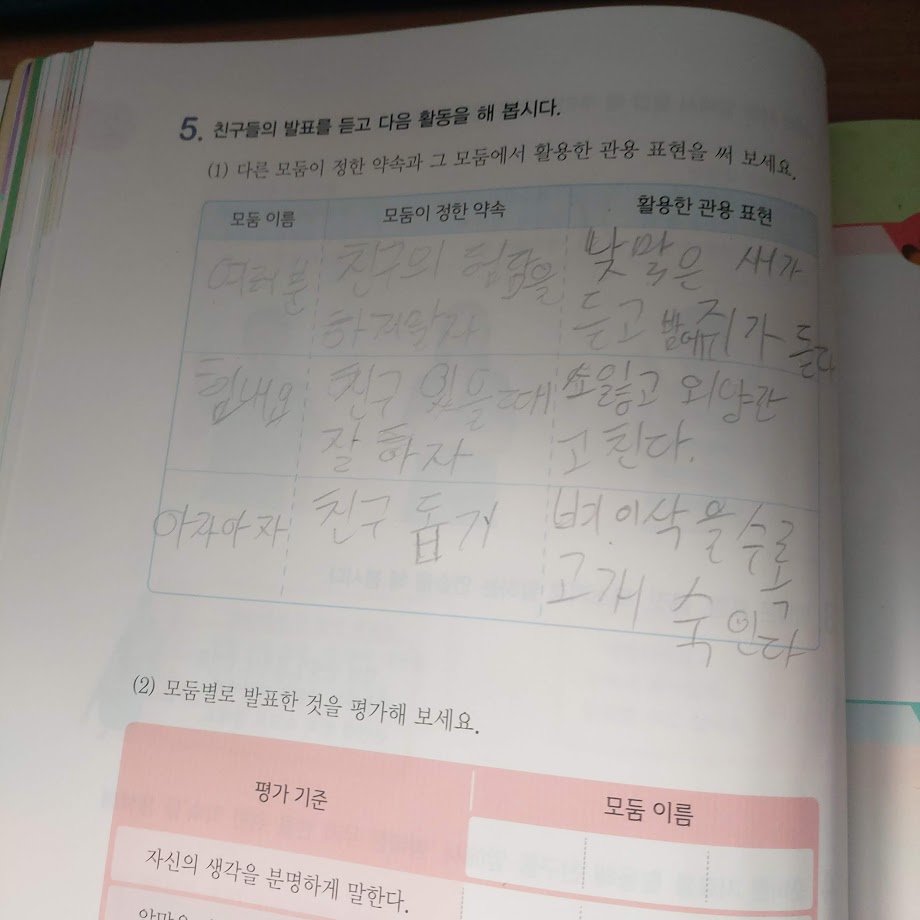 5. 친구들의 발표를 듣고 다음 활동을 해 봅시다.
(1) 다른 모둠이 정한 약속과 그 모둠에서 활용한 관용 표현을 써 보세요.
모둠 이름 모둠이 정한 약속 활용한 관용 표현
여러분 친구의 험담을 낮말은 새가
하지말자 듣고 밤에쥐가 듣다
힘내요 친구 있을때 소잃고 외양간
잘 하자 고친다.
아자아자 친구 돕기 벼 이삭을 수록
고개 숙인다
(2) 모둠별로 발표한 것을 평가해 보세요.
평가 기준 모둠 이름
자신의 생각을 분명하게 말한다.